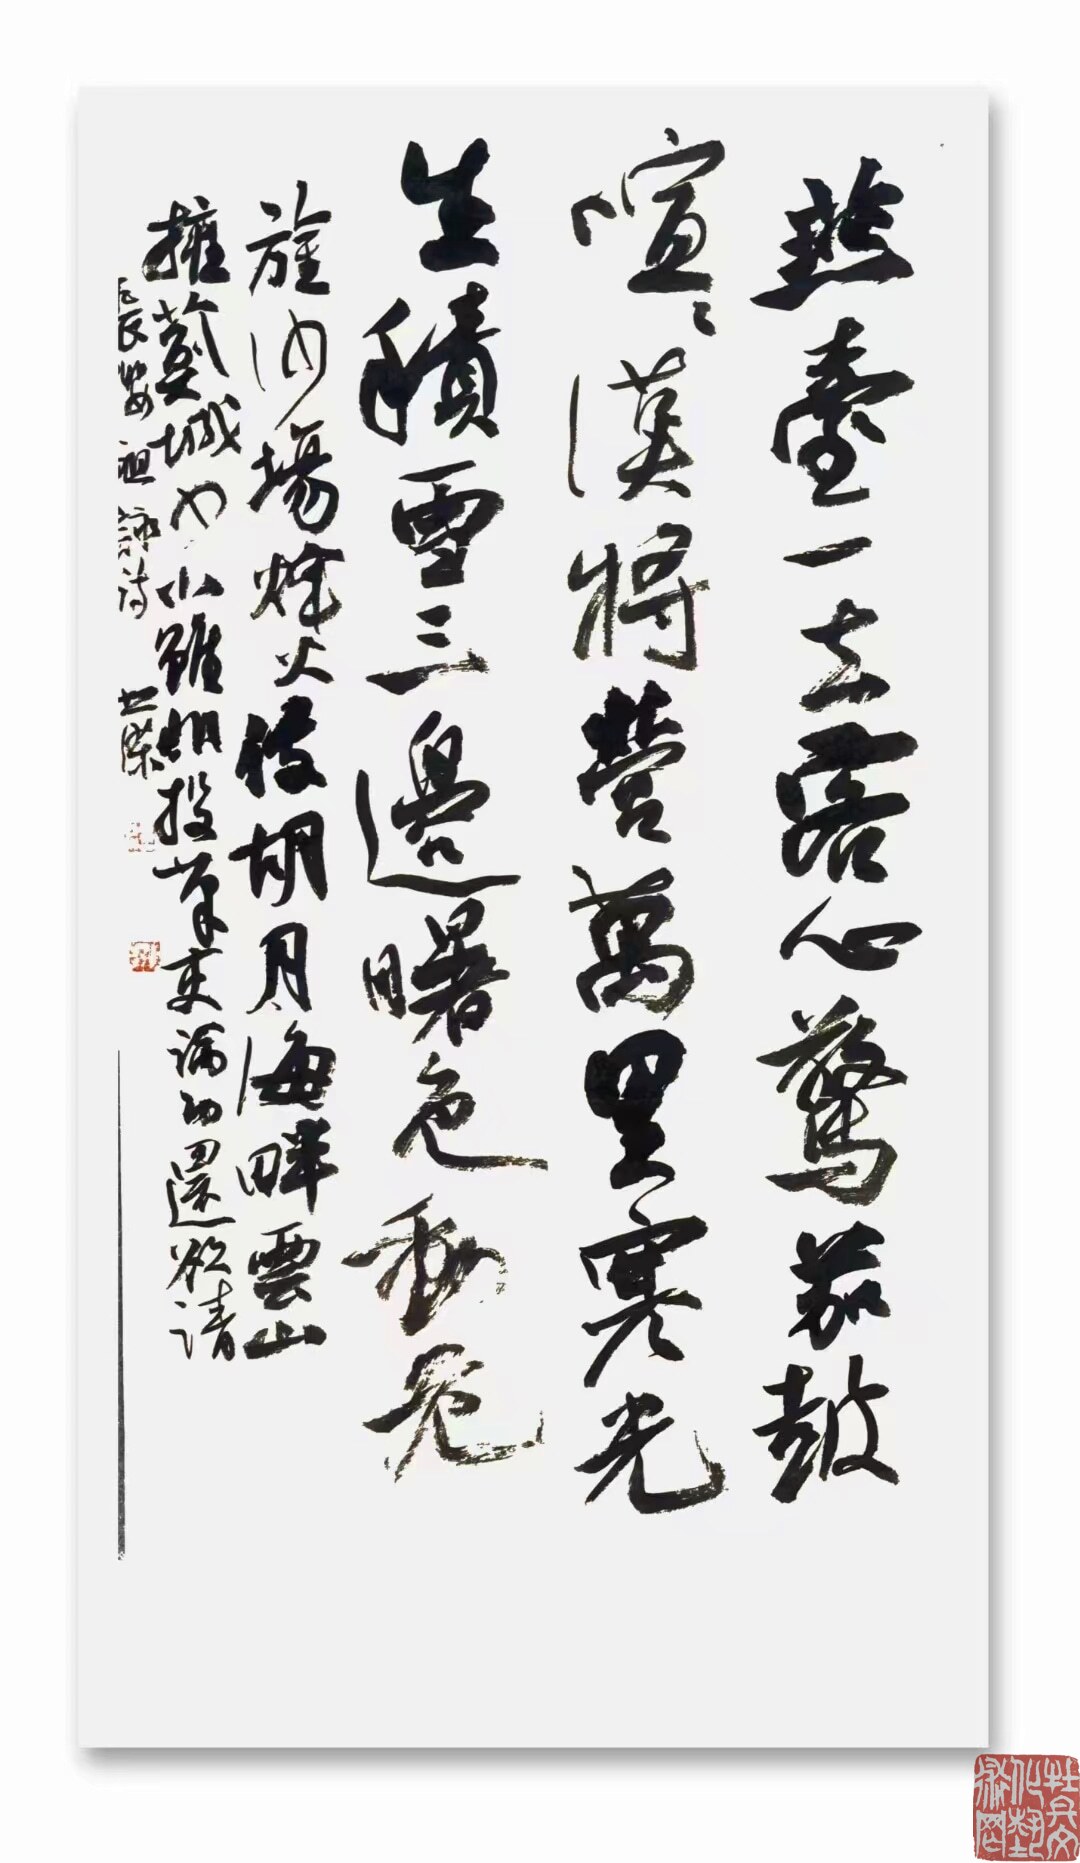 燕臺一去客心驚笳鼓
喧〻漢將營萬里寒光
生積雪三邊曙色動危
旌沙場烽火侵胡月海畔雲山
擁薊城少小雖非投筆吏論功還欲請
長纓 祖詠詩